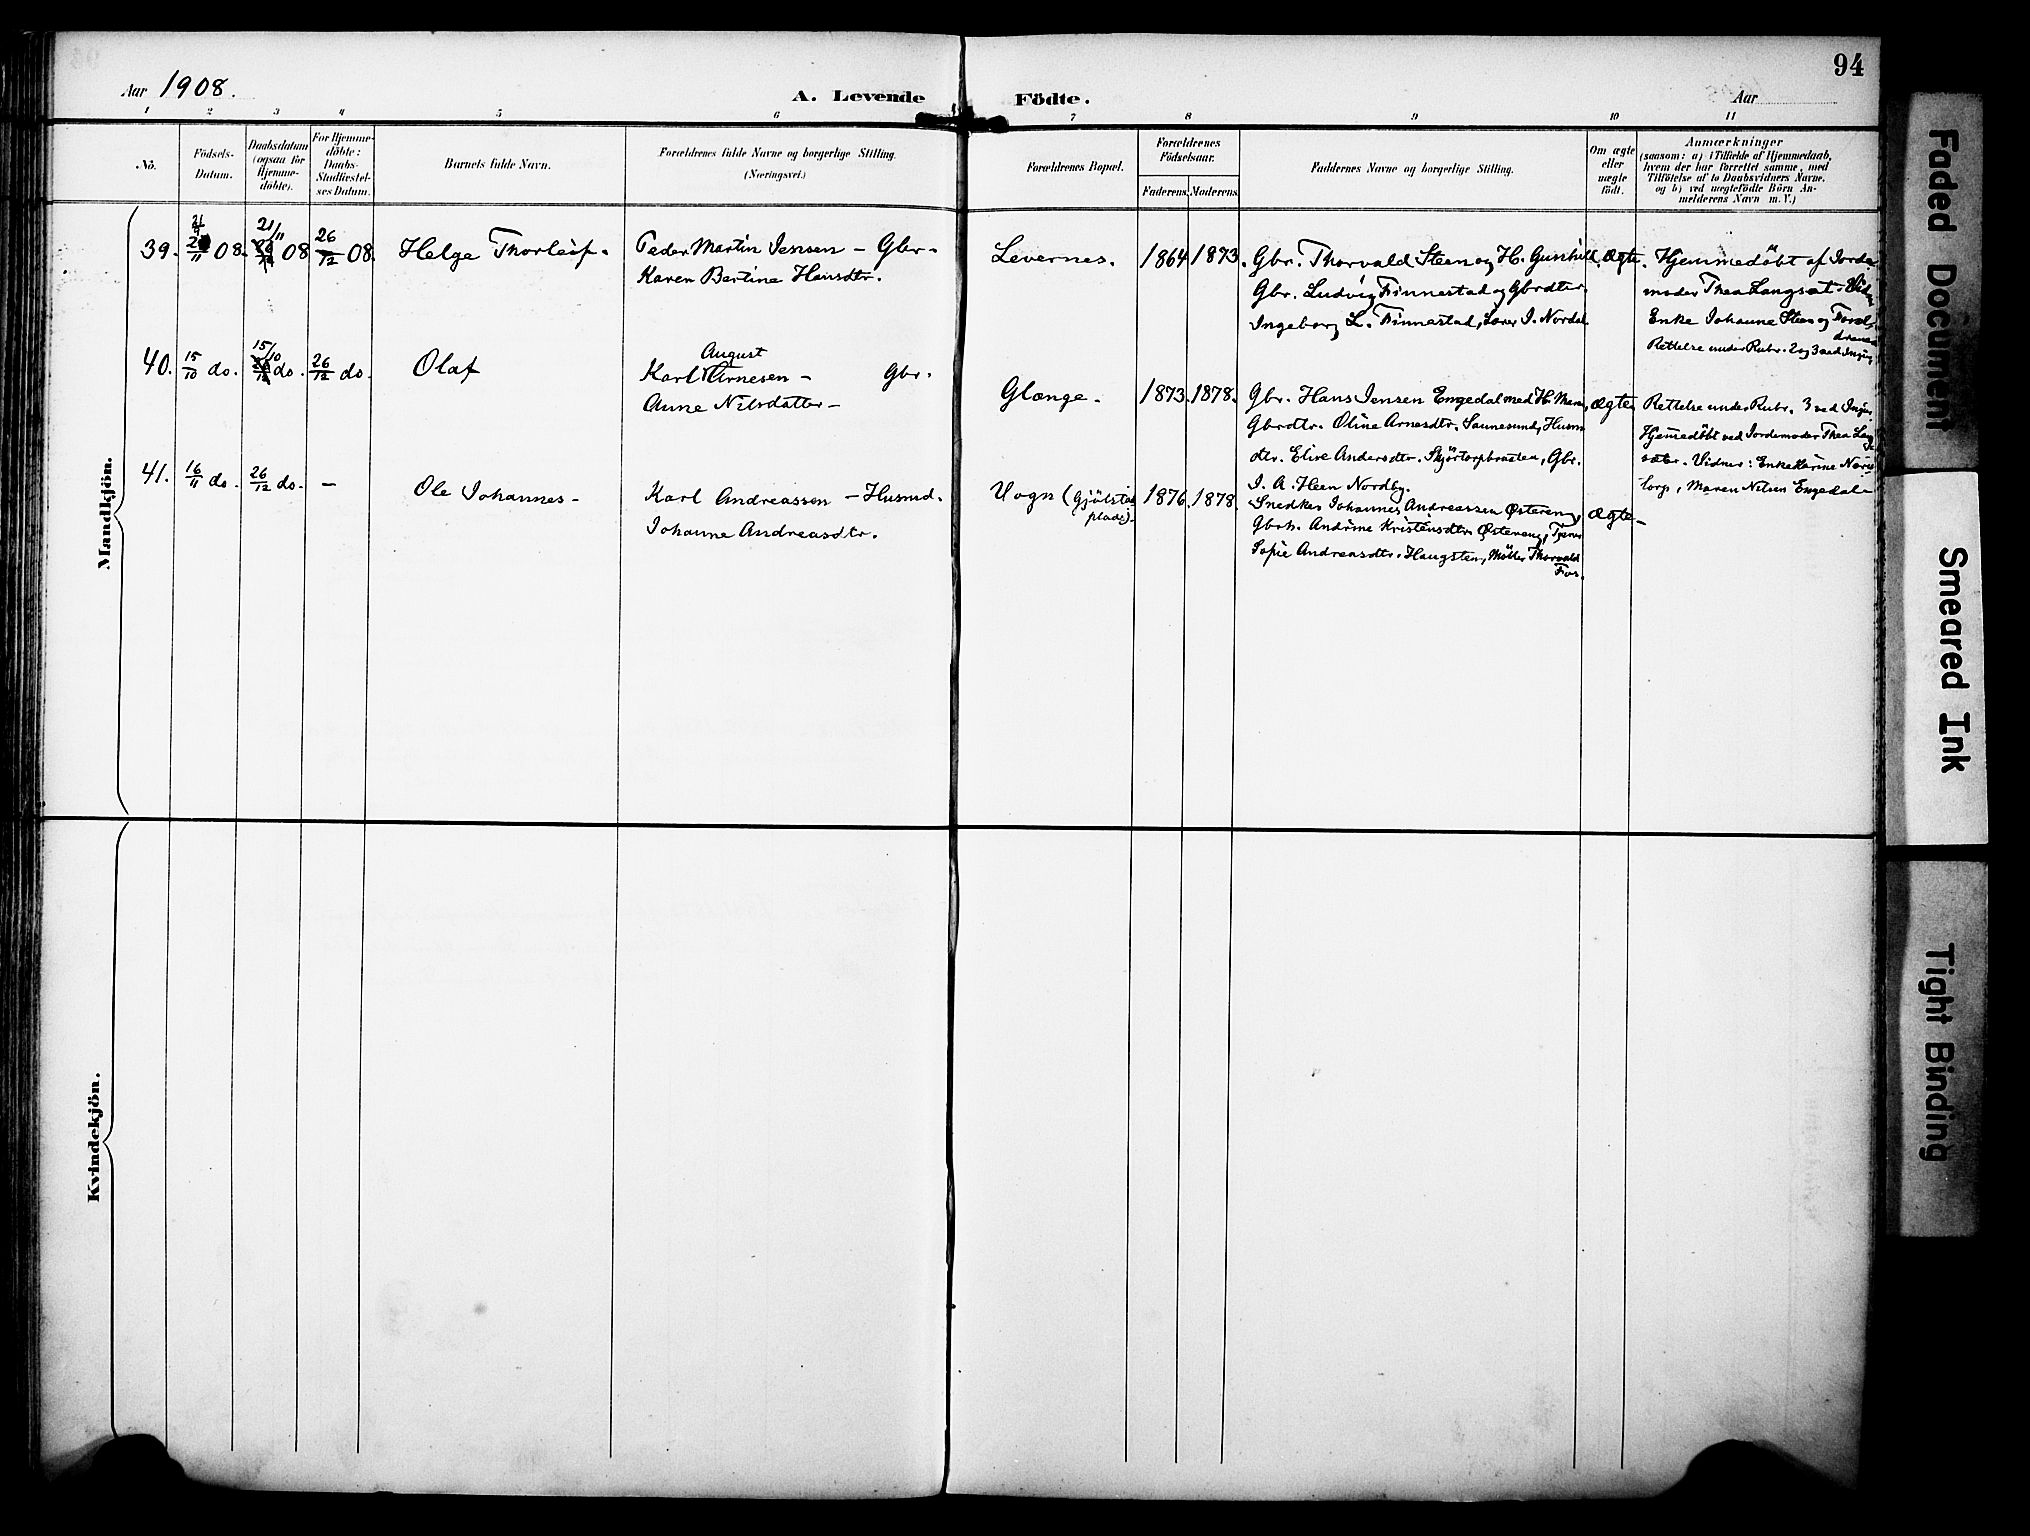 94
Aar 1908.
A. Levende Födte.
Aar
1 2 3 4 5 6 7 8 9 10 11
No.
Födsels-
Datum.
Daabsdatum
(ogsaa for
Hjemme-
döbte).
For Hjemme-
döbte:
Daabs-
Stadfæstel-
ses Datum.
Barnets fulde Navn.
Forældrenes fulde Navne og borgerlige Stilling.
(Næringsvei.)
Forældrenes Bopæl.
Forældrenes
Födselsaar.
Faderens. Moderens.
Faddernes Navne og borgerlige Stilling.
Om ægte
eller
uægte
födt.
Anmærkninger
(saasom: a) i Tilfælde af Hjemmedaab,
hvem der har forrettet samme, med
Tilföielse af to Daabsvidners Navne.
og b) ved uægtefödte Börn An-
melderens Navn m. V.)
Mandkjön.
39. 21/11 08. 21/11 08 26/12 08. Helge Thorleif.
Peder Martin Jensen - Gbr.
Karen Bertine Hansdtr.
Levernes. 1864 1873.
Gbr. Thorvald Steen og H. Gunhild.
Gbr. Ludvig Finnestad og Gbrdtr.
Ingeborg L. Finnestad, J. Nordal.
Ægte.
Hjemmedöbt af Jorde
moder Thea Langsæt.
Enke Johanne Steen og
Rettelse under Rubr. 2 og 3 ved
40. 15/10 do. 15/10 do. 26/12 do. Olaf
August
Karl Arnesen - Gbr.
Anne Nilsdatter -
Glænge. 1873. 1878.
Gbr. Hans Jensen Engedal med H. Maren,
Gbrdtr. Oline Arnesdtr. Saunesund, Husm
dtr. Elise Andersdtr. Skjörtorpbraaten, Gbr.
J. A. Heen Nordby.
Ægte
Rettelse under Rubr. 3 ved
Hjemmedöbt ved Jordemoder Thea Lang
sæter. Vidner: Enke Karine
torp, Maren Nilsen Engedal
41. 16/11 do. 26/12 do. - Ole Johannes -
Karl Andreassen - Husmd.
Johanne Andreasdtr.
Vogn (Gjölstad
plads).
1876. 1878.
Snedker Johannes Andreassen Østereng,
Gbrk. Andrine Kristensdtr. Østereng, Tjener
Sofie Andreasdtr. Haugsten, Möller Thorvald
For.
Ægte -
Kvindekjön.
Faded Document
Smeared Ink
Tight Binding